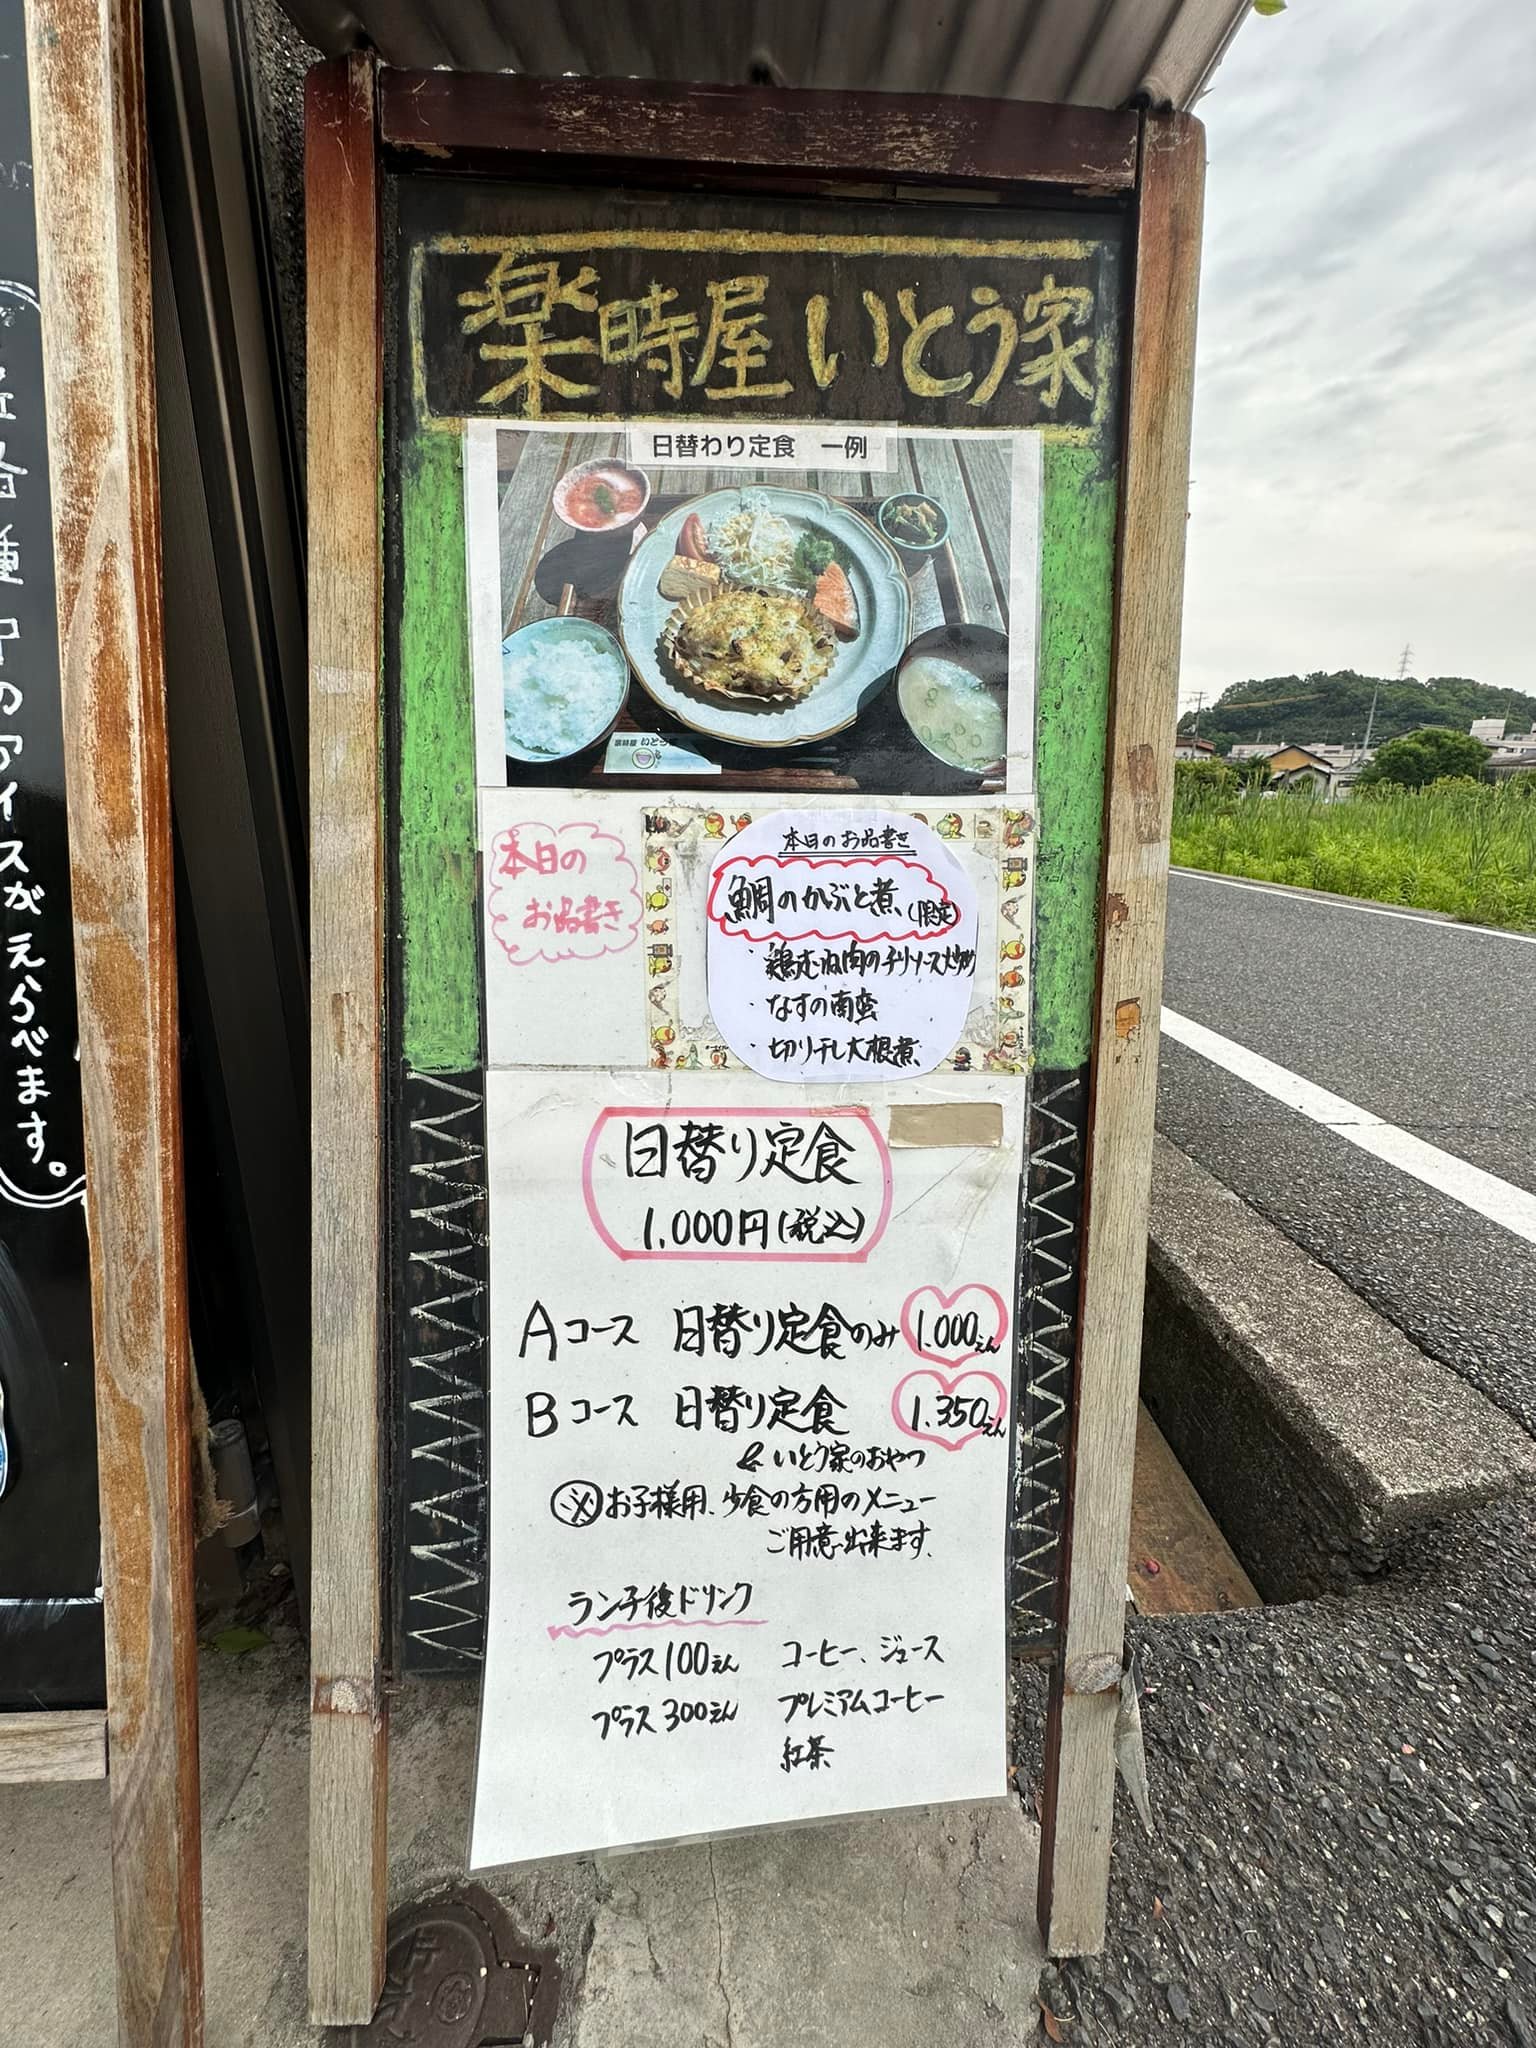 楽時屋 いとう家
日替わり定食 一例
楽時屋 いとう家
本日の
お品書き
本日のお品書き
鯛のかぶと煮(限定)
・鶏むね肉のチリソース炒め
・なすの南蛮
・切り干し大根煮
日替り定食
1.000円(税込)
Aコース 日替り定食のみ 1.000えん
Bコース 日替り定食 1.350えん
& いとう家のおやつ
※お子様用、少食の方用のメニュー
ご用意出来ます。
ランチ後ドリンク
プラス100えん コーヒー、ジュース
プラス300えん プレミアムコーヒー
紅茶
種中のアイスがえらべます。